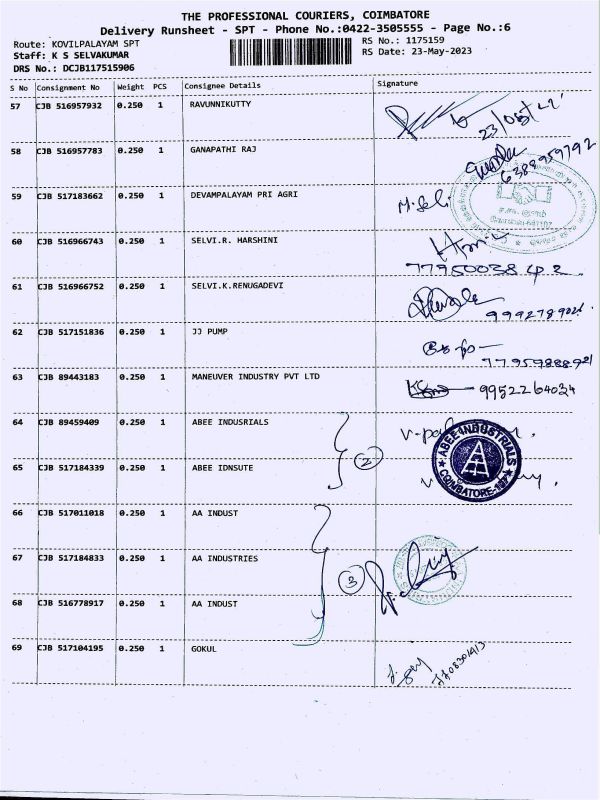 THE PROFESSIONAL COURIERS, COIMBATORE
Delivery Runsheet - SPT - Phone No.:0422-3505555 - Page No.:6
Route: KOVILPALAYAM SPT
Staff: K S SELVAKUMAR
DRS No.: DCJB117515906
RS No.: 1175159
RS Date: 23-May-2023
S No Consignment No Weight PCS Consignee Details Signature
57 CJB 516957932 0.250 1 RAVUNNIKUTTY
58 CJB 516957783 0.250 1 GANAPATHI RAJ
59 CJB 517183662 0.250 1 DEVAMPALAYAM PRI AGRI
60 CJB 516966743 0.250 1 SELVI.R. HARSHINI
61 CJB 516966752 0.250 1 SELVI.K.RENUGADEVI
62 CJB 517151836 0.250 1 JJ PUMP
63 CJB 89443183 0.250 1 MANEUVER INDUSTRY PVT LTD 9952264034
64 CJB 89459409 0.250 1 ABEE INDUSRIALS
ABEE INDUSTRIALS
COIMBATORE
2
65 CJB 517184339 0.250 1 ABEE IDNSUTE
66 CJB 517011018 0.250 1 AA INDUST
67 CJB 517184833 0.250 1 AA INDUSTRIES
3
68 CJB 516778917 0.250 1 AA INDUST
69 CJB 517104195 0.250 1 GOKUL